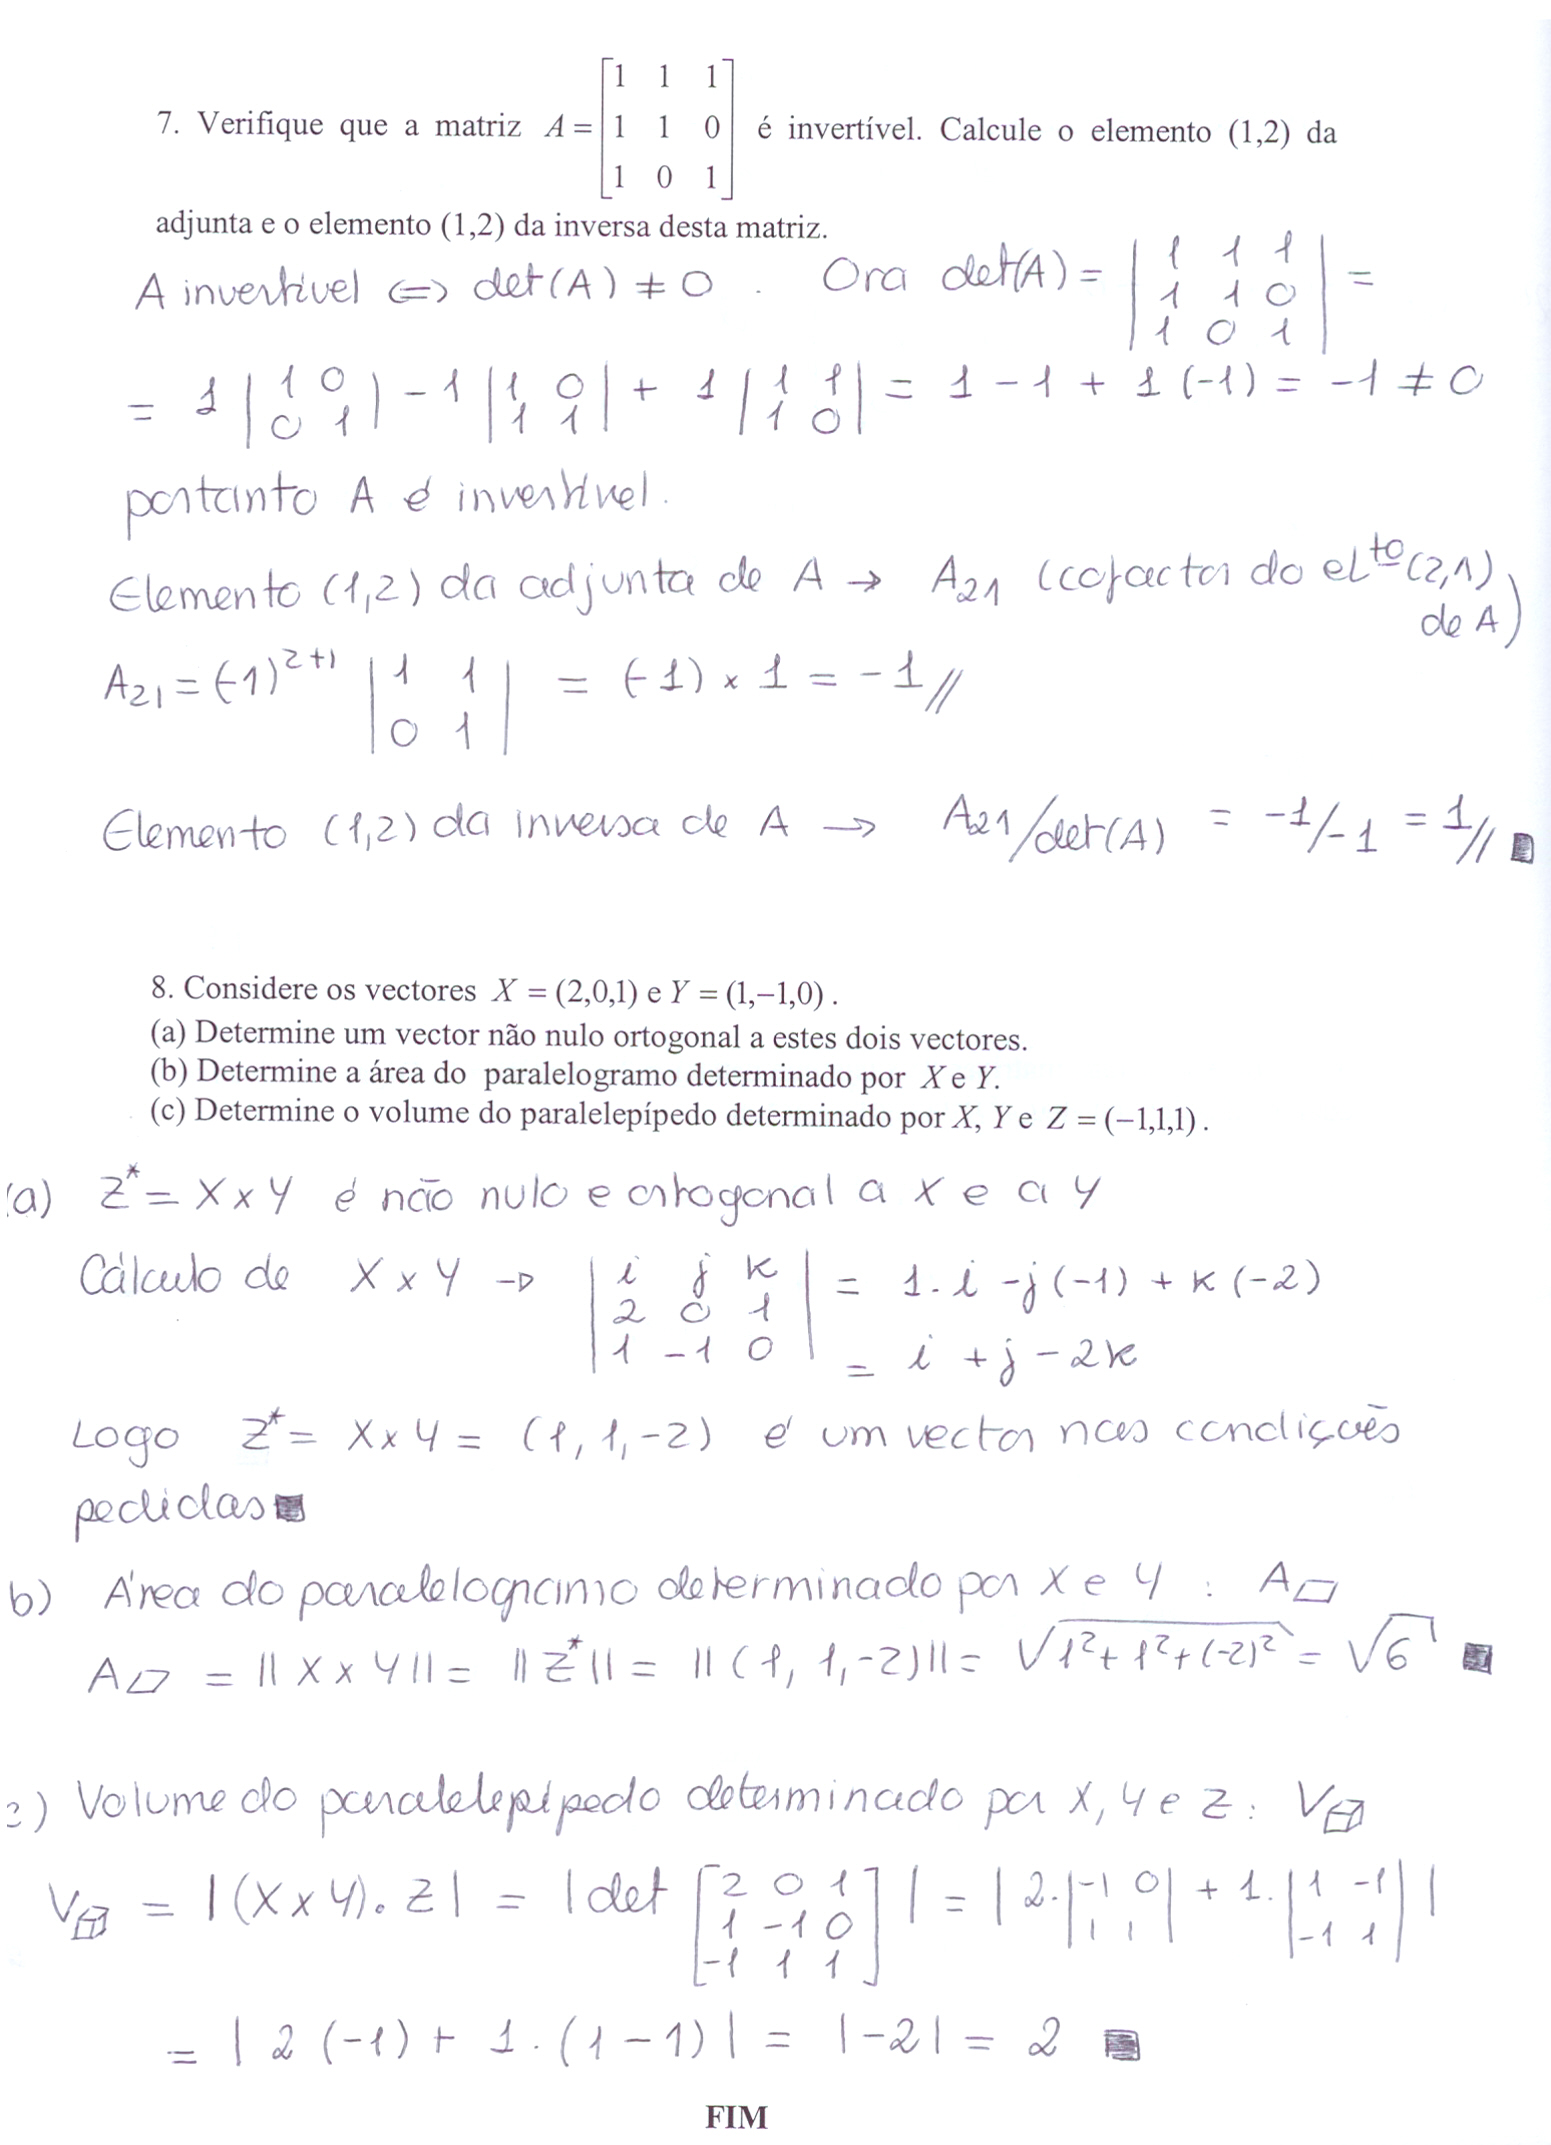 7. Verifique que a matriz A = [1 1 1; 1 1 0; 1 0 1] é invertível. Calcule o elemento (1,2) da
adjunta e o elemento (1,2) da inversa desta matriz.
A invertível <=> det(A) ≠ 0 . Ora det(A) = |1 1 1; 1 1 0; 1 0 1| =
= 1 |1 0; 0 1| - 1 |1 0; 1 1| + 1 |1 1; 1 0| = 1 - 1 + 1 (-1) = -1 ≠ 0
portanto A é invertível.
Elemento (1,2) da adjunta de A → A21 (cofactor do el.to (2,1)
de A)
A21 = (-1)^2+1 |1 1; 0 1| = (-1) × 1 = -1 //
Elemento (1,2) da inversa de A → A21/det(A) = -1/-1 = 1 // ■
8. Considere os vectores X = (2,0,1) e Y = (1,−1,0) .
(a) Determine um vector não nulo ortogonal a estes dois vectores.
(b) Determine a área do paralelogramo determinado por X e Y.
(c) Determine o volume do paralelepípedo determinado por X, Y e Z = (−1,1,1) .
(a) Z* = X × Y é não nulo e ortogonal a X e a Y
Cálculo de X × Y → |i j k; 2 0 1; 1 -1 0| = 1.i - j(-1) + k(-2)
= i + j - 2k
Logo Z* = X × Y = (1, 1, -2) é um vector nas condições
pedidas ■
b) Área do paralelogramo determinado por X e Y : A▱
A▱ = ||X × Y|| = ||Z*|| = ||(1, 1, -2)|| = √(1² + 1² + (-2)²) = √6 ■
c) Volume do paralelepípedo determinado por X, Y e Z : V
V = |(X × Y). Z| = |det [2 0 1; 1 -1 0; -1 1 1]| = |2.|-1 0; 1 1| + 1.|1 -1; -1 1||
= |2 (-1) + 1 . (1 - 1)| = |-2| = 2 ■
FIM